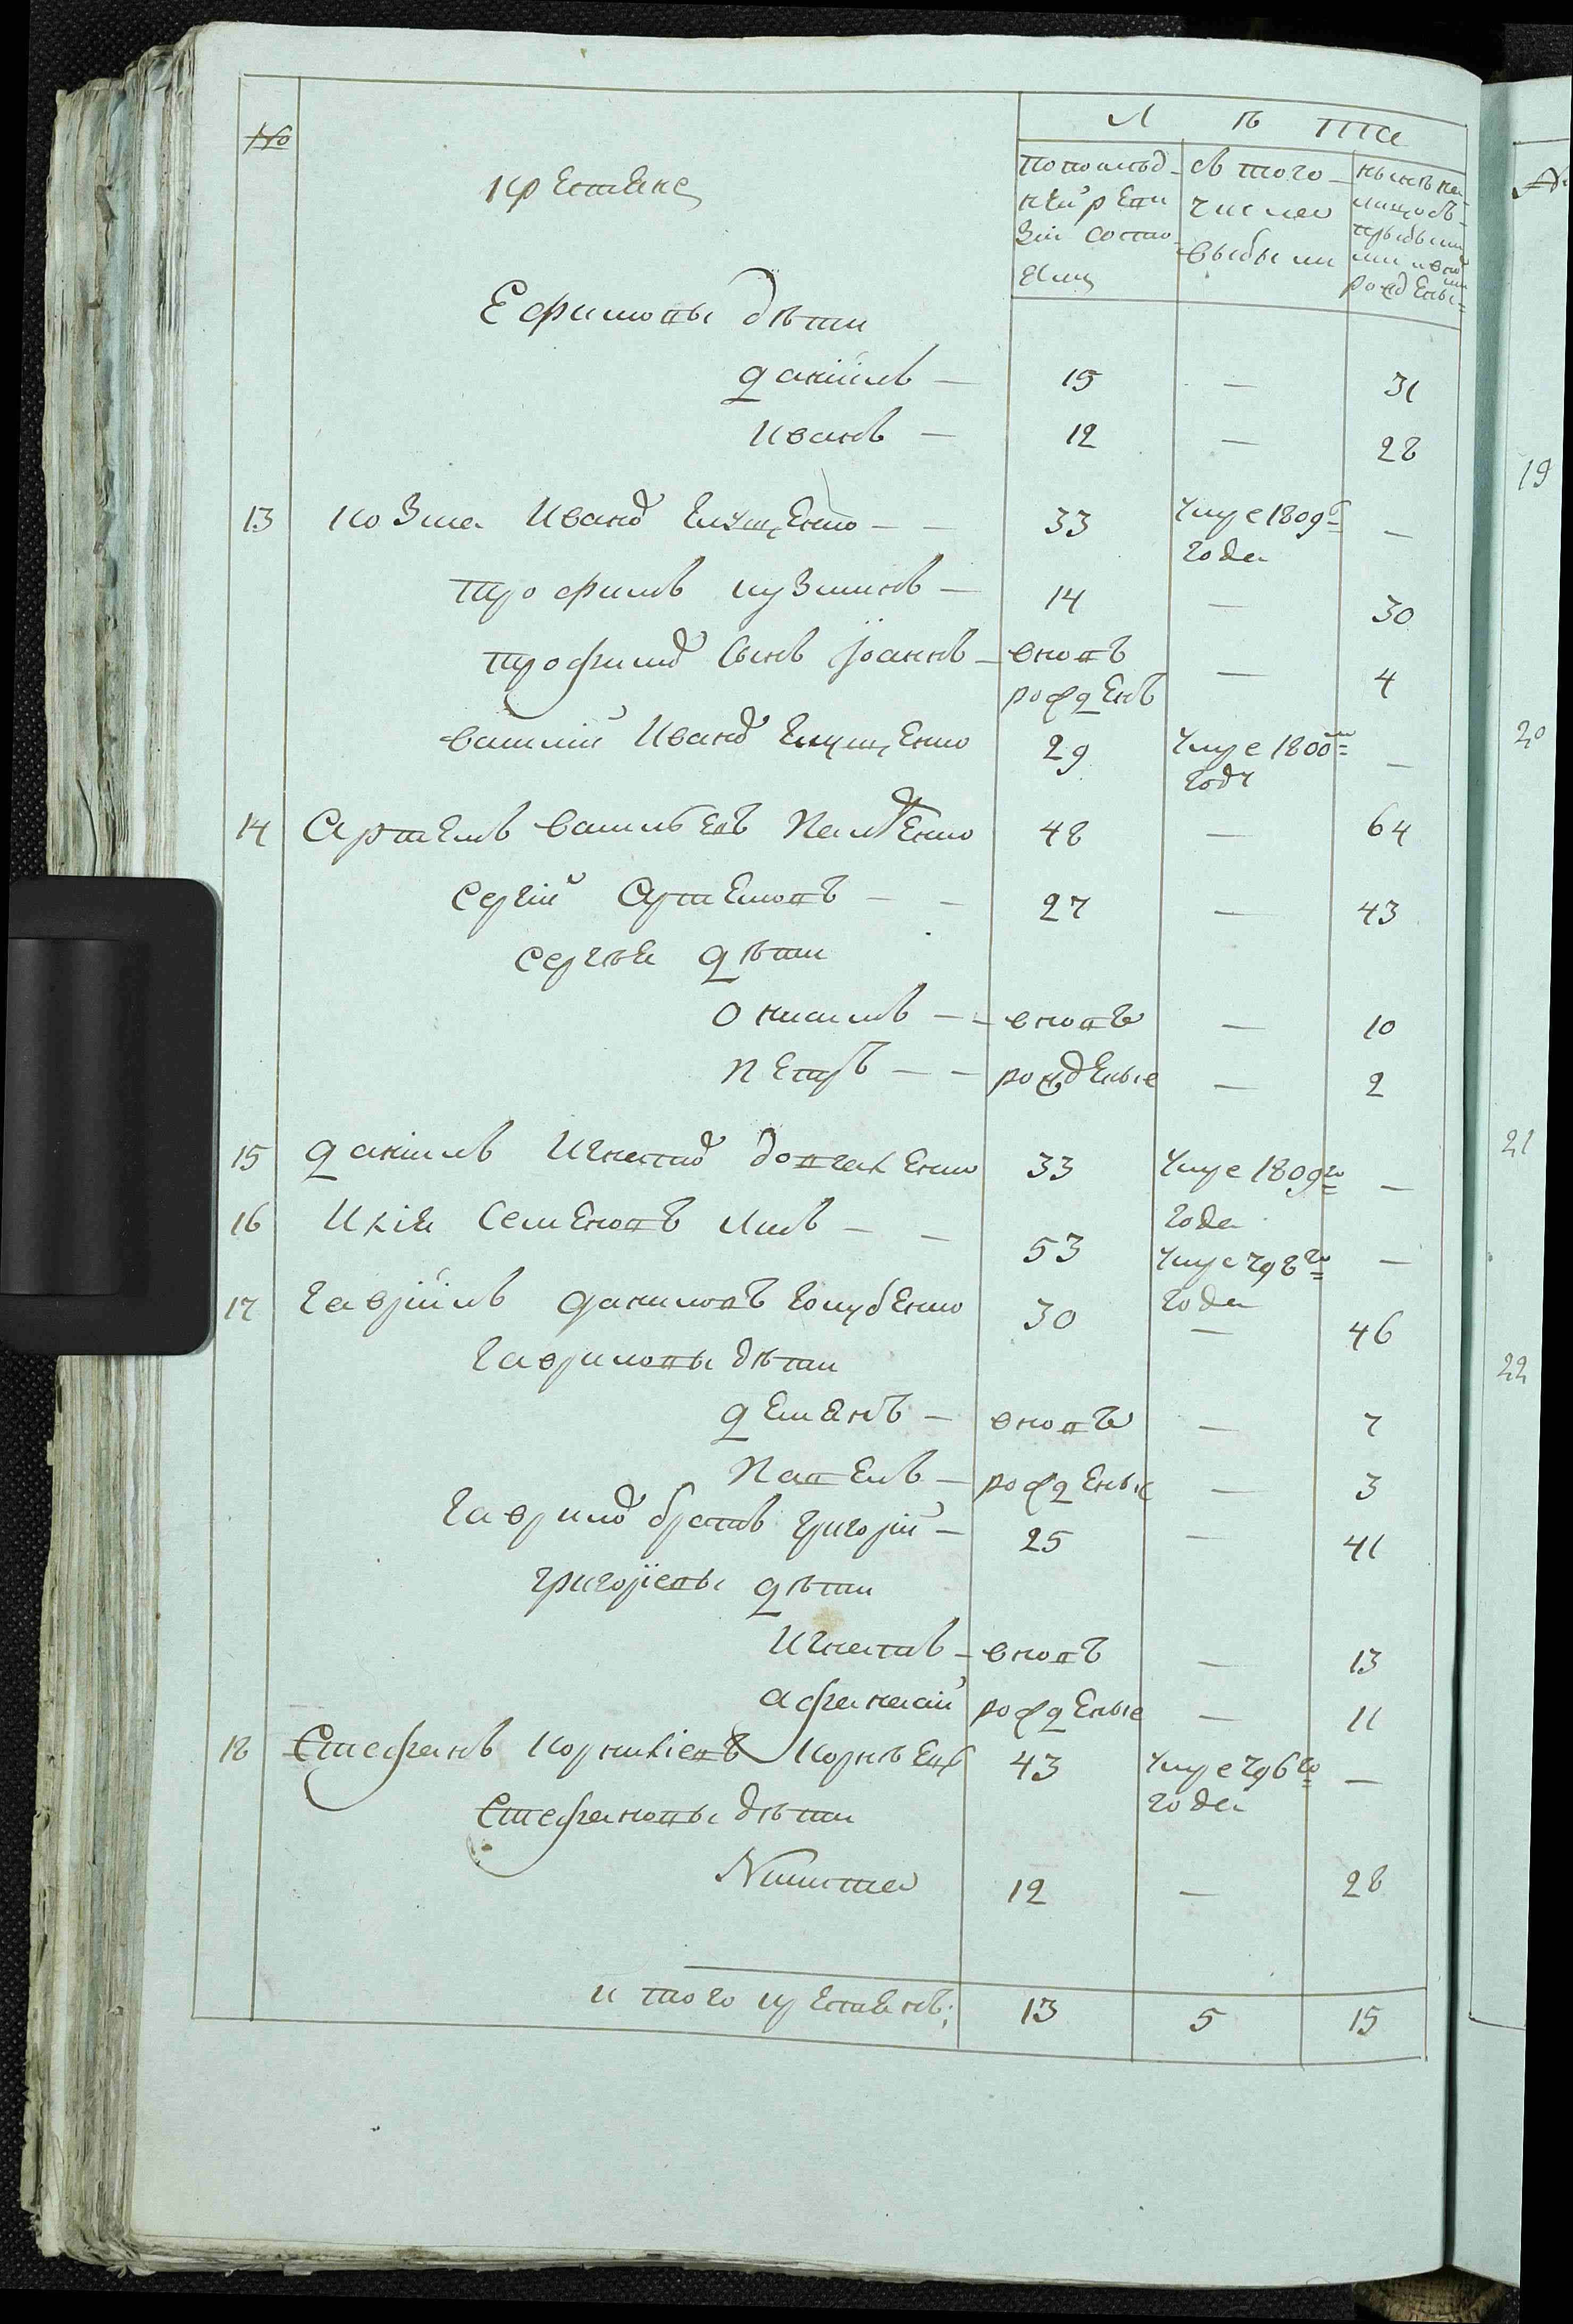 № Лѣта
крестяне
по последней ревизіи состояли
съ того числа выбыли
нынѣ на лицо съ прибылыми и вновь рожденными
Ефимовы дѣти
Даніилъ — 15 — 31
Иванъ — 12 — 28
13 Козма Иванов Глущенко — — 33 умре 1809г года —
Трофимъ Кузминъ — 14 — 30
Трофимов сынъ Іоаннъ — вновь рожденъ — 4
Василий Иванов Глущенко 29 умре 1800м году —
14 Артемъ Васильевъ Павленко 48 — 64
Сергій Артемовъ — — 27 — 43
Сергѣя дѣти
Онисимъ — — вновь — 10
Петръ — — рожденые — 2
15 Даніилъ Игнатов Довгаленко 33 умре 1809го года —
16 Илія Семеновъ — — 53 умре 798го года —
17 Гавріилъ Даниловъ Голубенко 30 — 46
Гавриловы дѣти
Демянъ — вновь — 7
Павелъ — рожденые — 3
Гаврилов братъ Григорій — 25 — 41
Григоріевы дѣти
Игнатъ — вновь — 13
Афанасій рожденые — 11
18 Стефанъ Корниліевъ Корнѣевъ 43 умре 796го года —
Стефановы дѣти
Никита 12 — 28
итого крестянъ: 13 5 15
19
20
21
22